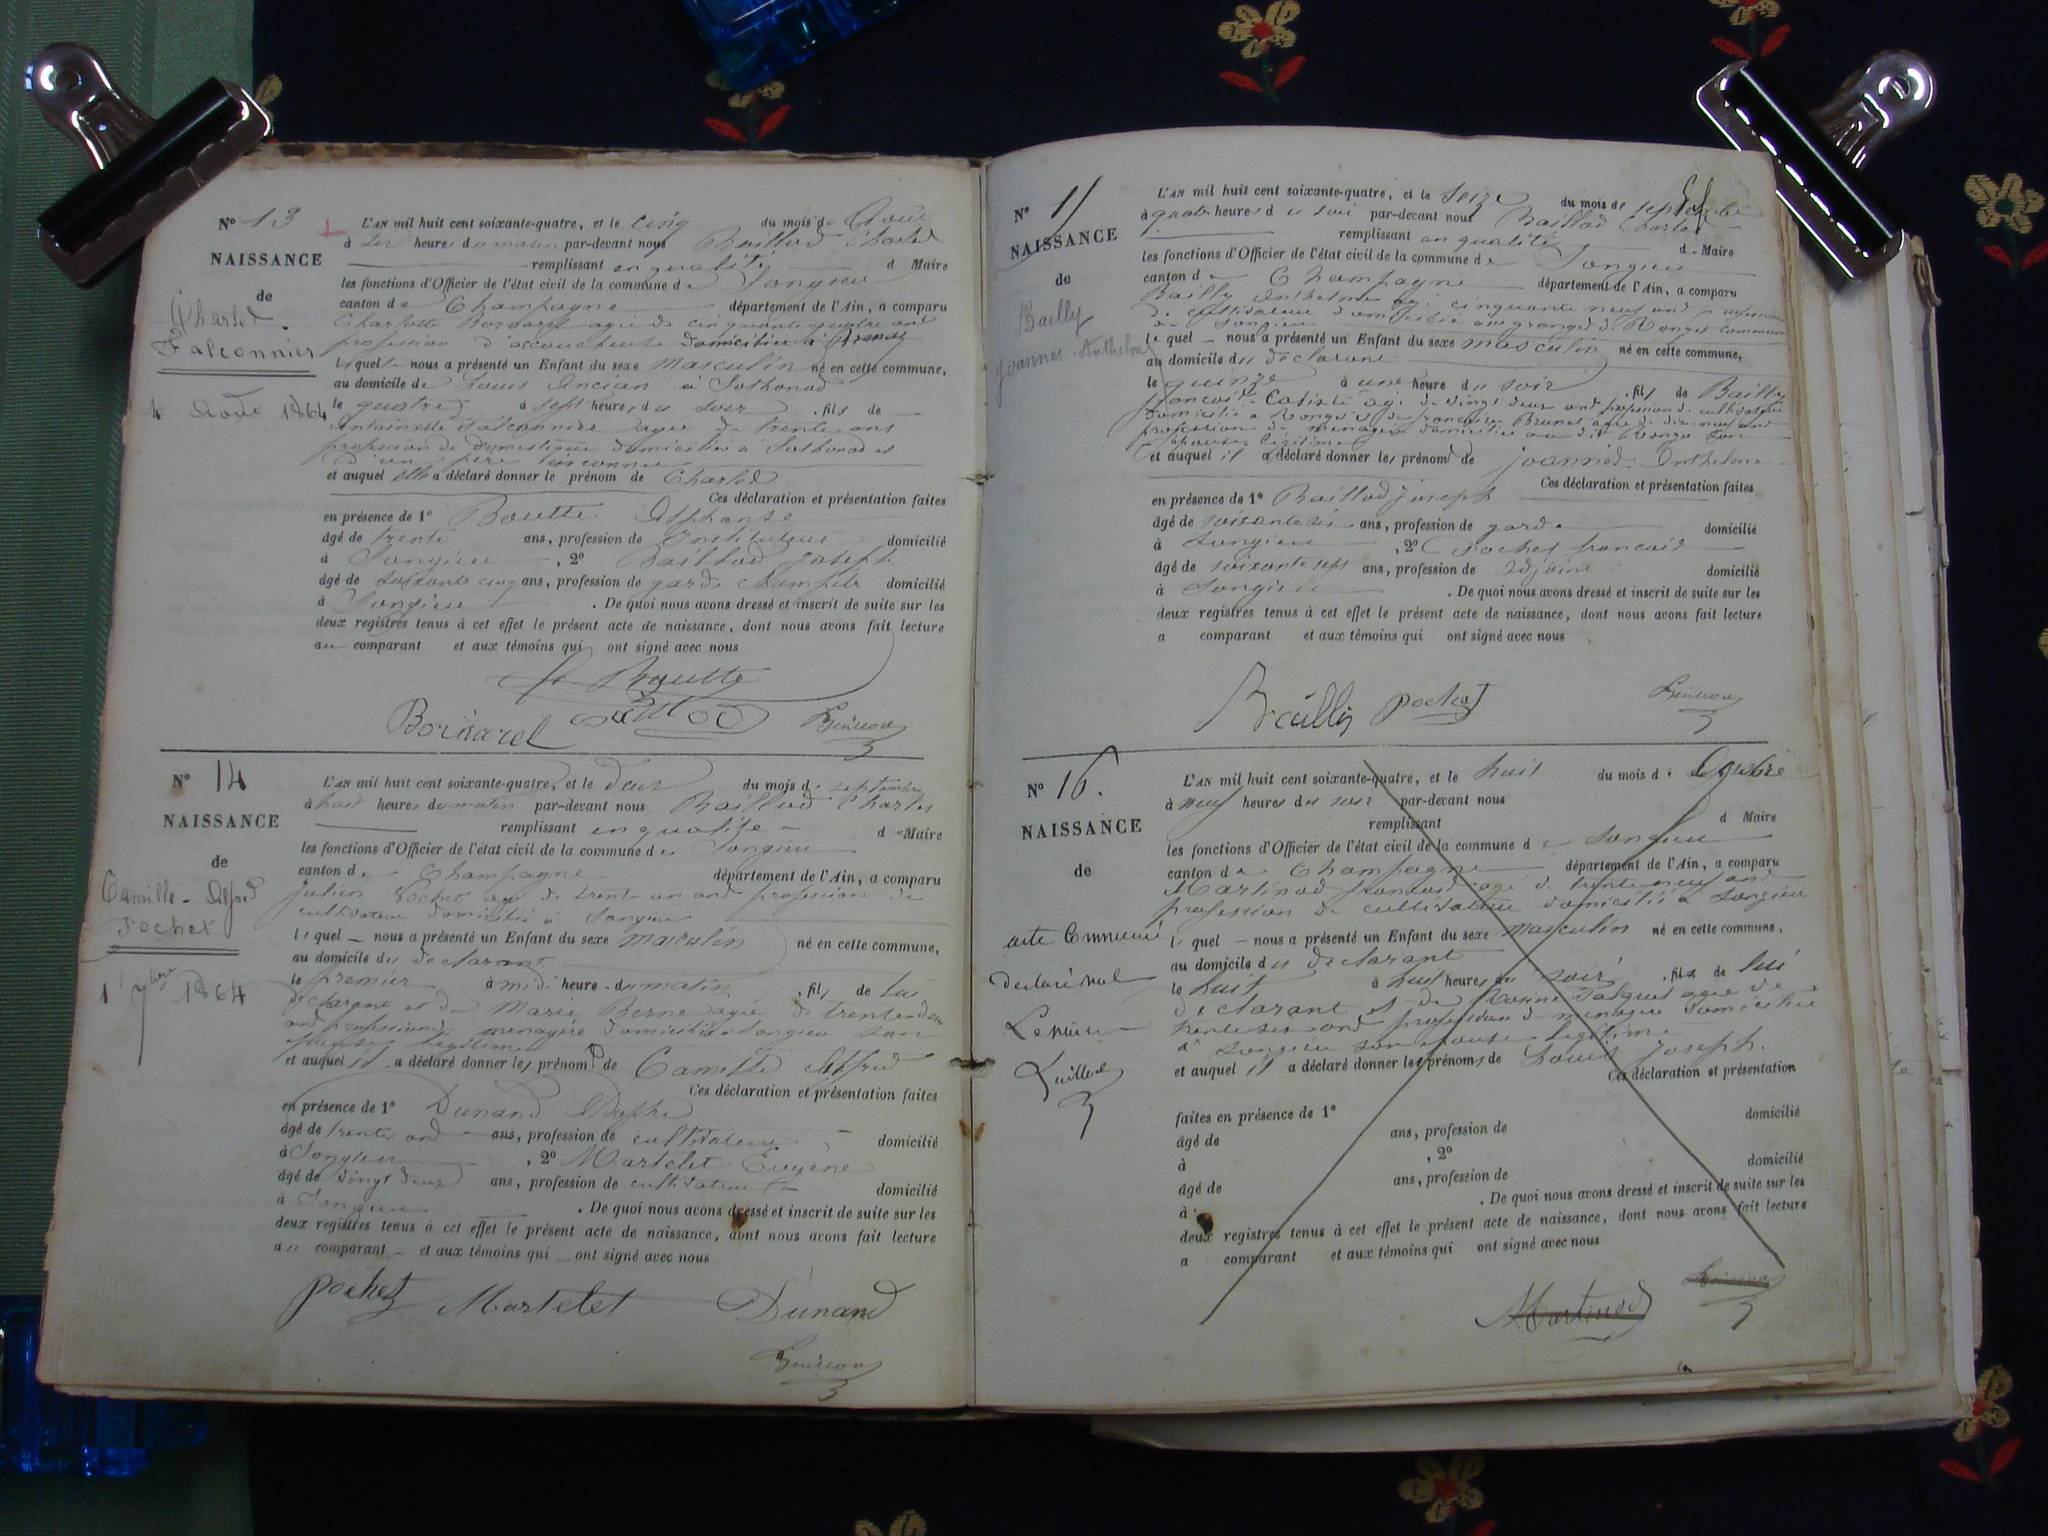 N° 13
NAISSANCE
de
Charles
Falconnier
4 Août 1864
L'AN mil huit cent soixante-quatre, et le cinq du mois d'Août
à heures du matin par-devant nous Baillod Charles
remplissant en qualité d Maire
les fonctions d'Officier de l'état civil de la commune de Songieu
canton de Champagne département de l'Ain, a comparu
Charlotte Bornarel agée de cinquante quatre ans
profession d'accoucheuse domiciliée à
lequel nous a présenté un Enfant du sexe masculin né en cette commune,
au domicile de Louis Ancian à Sothonod
le quatre à sept heures du soir, fils de
Antoinette Falconnier agée de trente ans
profession de domestique domiciliée à Sothonod et
d'un père inconnu
et auquel elle a déclaré donner le prénom de Charles
Ces déclaration et présentation faites
en présence de 1° Boutte Alphonse
âgé de trente ans, profession de Instituteur domicilié
à Songieu, 2° Baillod Joseph
âgé de soixante cinq ans, profession de garde champêtre domicilié
à Songieu. De quoi nous avons dressé et inscrit de suite sur les
deux registres tenus à cet effet le présent acte de naissance, dont nous avons fait lecture
au comparant et aux témoins qui ont signé avec nous
Boutte
Bornarel Baillod
N° 14
NAISSANCE
de
Camille-Alfred
Pochet
1er 7bre 1864
L'AN mil huit cent soixante-quatre, et le deux du mois de septembre
à huit heures du matin par-devant nous Baillod Charles
remplissant en qualité d Maire
les fonctions d'Officier de l'état civil de la commune de Songieu
canton de Champagne département de l'Ain, a comparu
Julien Pochet agé de trente un ans profession de
cultivateur domicilié à Songieu
lequel nous a présenté un Enfant du sexe masculin né en cette commune,
au domicile du déclarant
le premier à midi heure du matin, fils de lui
déclarant et de Marie Berne agée de trente deux
ans profession de menagère domiciliée à Songieu son
épouse légitime
et auquel il a déclaré donner les prénoms de Camille Alfred
Ces déclaration et présentation faites
en présence de 1° Dunand
âgé de trente ans ans, profession de cultivateur domicilié
à Songieu, 2° Martelet Eugène
âgé de vingt deux ans, profession de cultivateur domicilié
à Songieu. De quoi nous avons dressé et inscrit de suite sur les
deux registres tenus à cet effet le présent acte de naissance, dont nous avons fait lecture
au comparant et aux témoins qui ont signé avec nous
pochet Martelet Dunand
N° 15
NAISSANCE
de
Bailly
Joannes-Anthelme
L'AN mil huit cent soixante-quatre, et le seize du mois de septembre
à quatre heures du soir par-devant nous Baillod Charles
remplissant en qualité d Maire
les fonctions d'Officier de l'état civil de la commune de Songieu
canton de Champagne département de l'Ain, a comparu
Bailly Anthelme agé cinquante neuf ans profession
de cultivateur domicilié aux granges de commune
de Songieu
lequel nous a présenté un Enfant du sexe masculin né en cette commune,
au domicile du déclarant
le quinze à une heure du soir, fils de Bailly
françois agé de vingt deux ans profession de cultivateur
domicilié à et de Brunet agée de dix neuf ans
profession de menagère domiciliée au dit son
épouse légitime
et auquel il a déclaré donner les prénoms de joannes Anthelme
Ces déclaration et présentation faites
en présence de 1° Baillod joseph
âgé de soixante six ans, profession de garde domicilié
à Songieu, 2° Pochet françois
âgé de soixante sept ans, profession de Adjoint domicilié
à Songieu. De quoi nous avons dressé et inscrit de suite sur les
deux registres tenus à cet effet le présent acte de naissance, dont nous avons fait lecture
a comparant et aux témoins qui ont signé avec nous
Bailly pochet
N° 16.
NAISSANCE
de
acte Commencé
declaré nul
Le maire
L'AN mil huit cent soixante-quatre, et le huit du mois d'Octobre
à neuf heures du soir par-devant nous
remplissant d Maire
les fonctions d'Officier de l'état civil de la commune de Songieu
canton de Champagne département de l'Ain, a comparu
Martinod françois agé de trente neuf ans
profession de cultivateur domicilié à Songieu
lequel nous a présenté un Enfant du sexe masculin né en cette commune,
au domicile du déclarant
le huit à huit heures du soir, fils de lui
déclarant et de agée de
trente six ans profession de menagère domiciliée
à Songieu son épouse légitime
et auquel il a déclaré donner les prénoms de Louis Joseph
Ces déclaration et présentation
faites en présence de 1° domicilié
âgé de ans, profession de
à , 2° domicilié
âgé de ans, profession de
à . De quoi nous avons dressé et inscrit de suite sur les
deux registres tenus à cet effet le présent acte de naissance, dont nous avons fait lecture
a comparant et aux témoins qui ont signé avec nous
Martinod